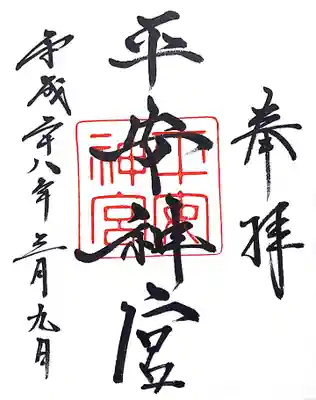 奉拝
平安神宮
平安神宮
平成二十八年三月九日